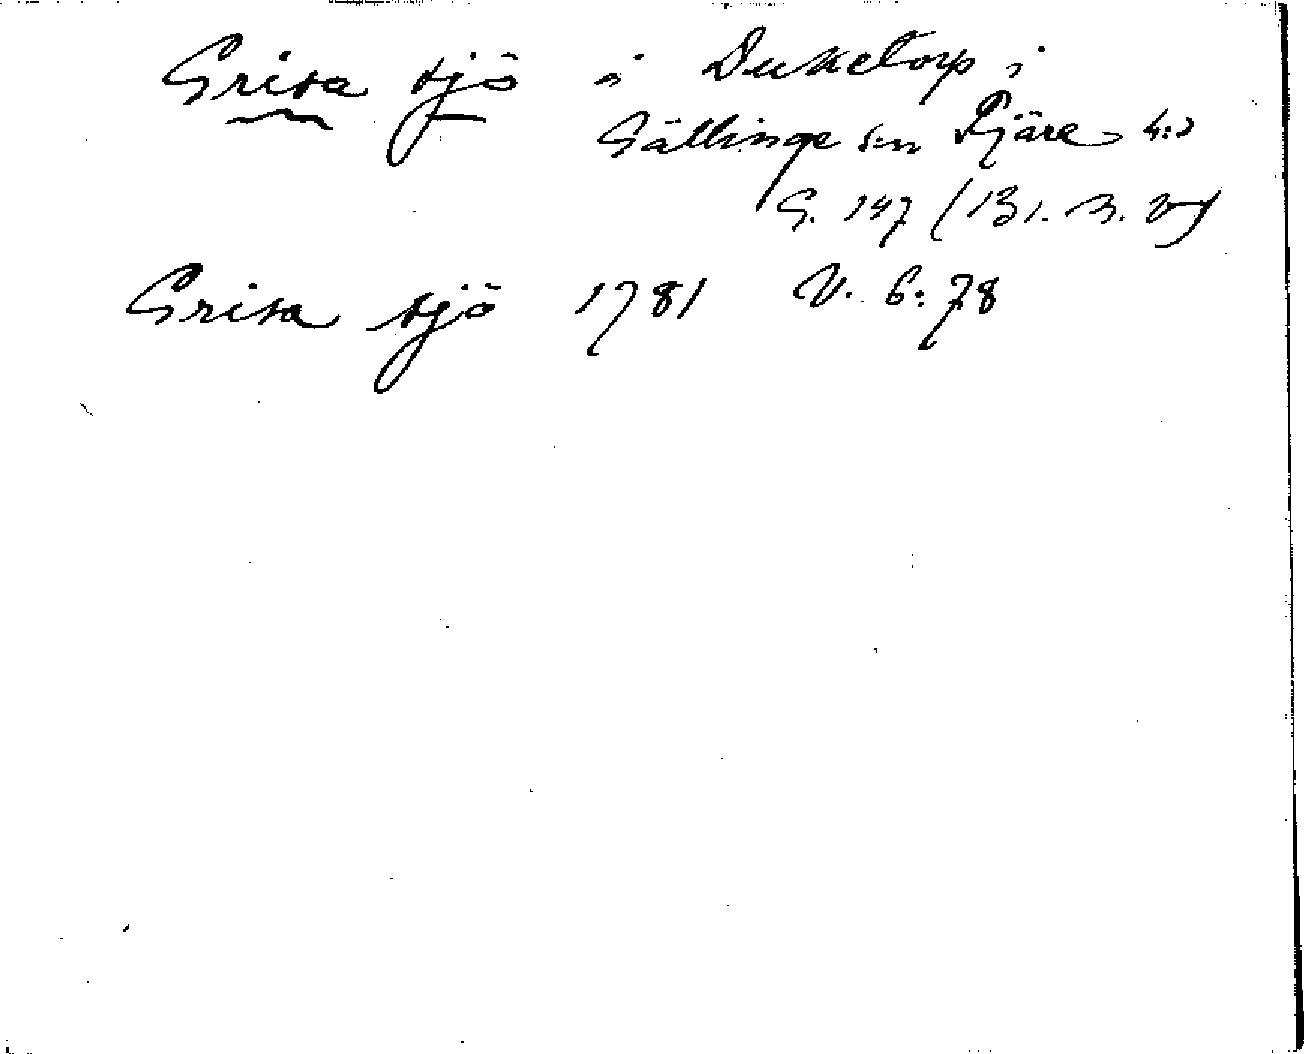 Grisa sjö i Duketorp i
Gällinge s:n Fjäre h:d
G. 147 (B1. 3. 
Grisa sjö 1781 V. 6:78